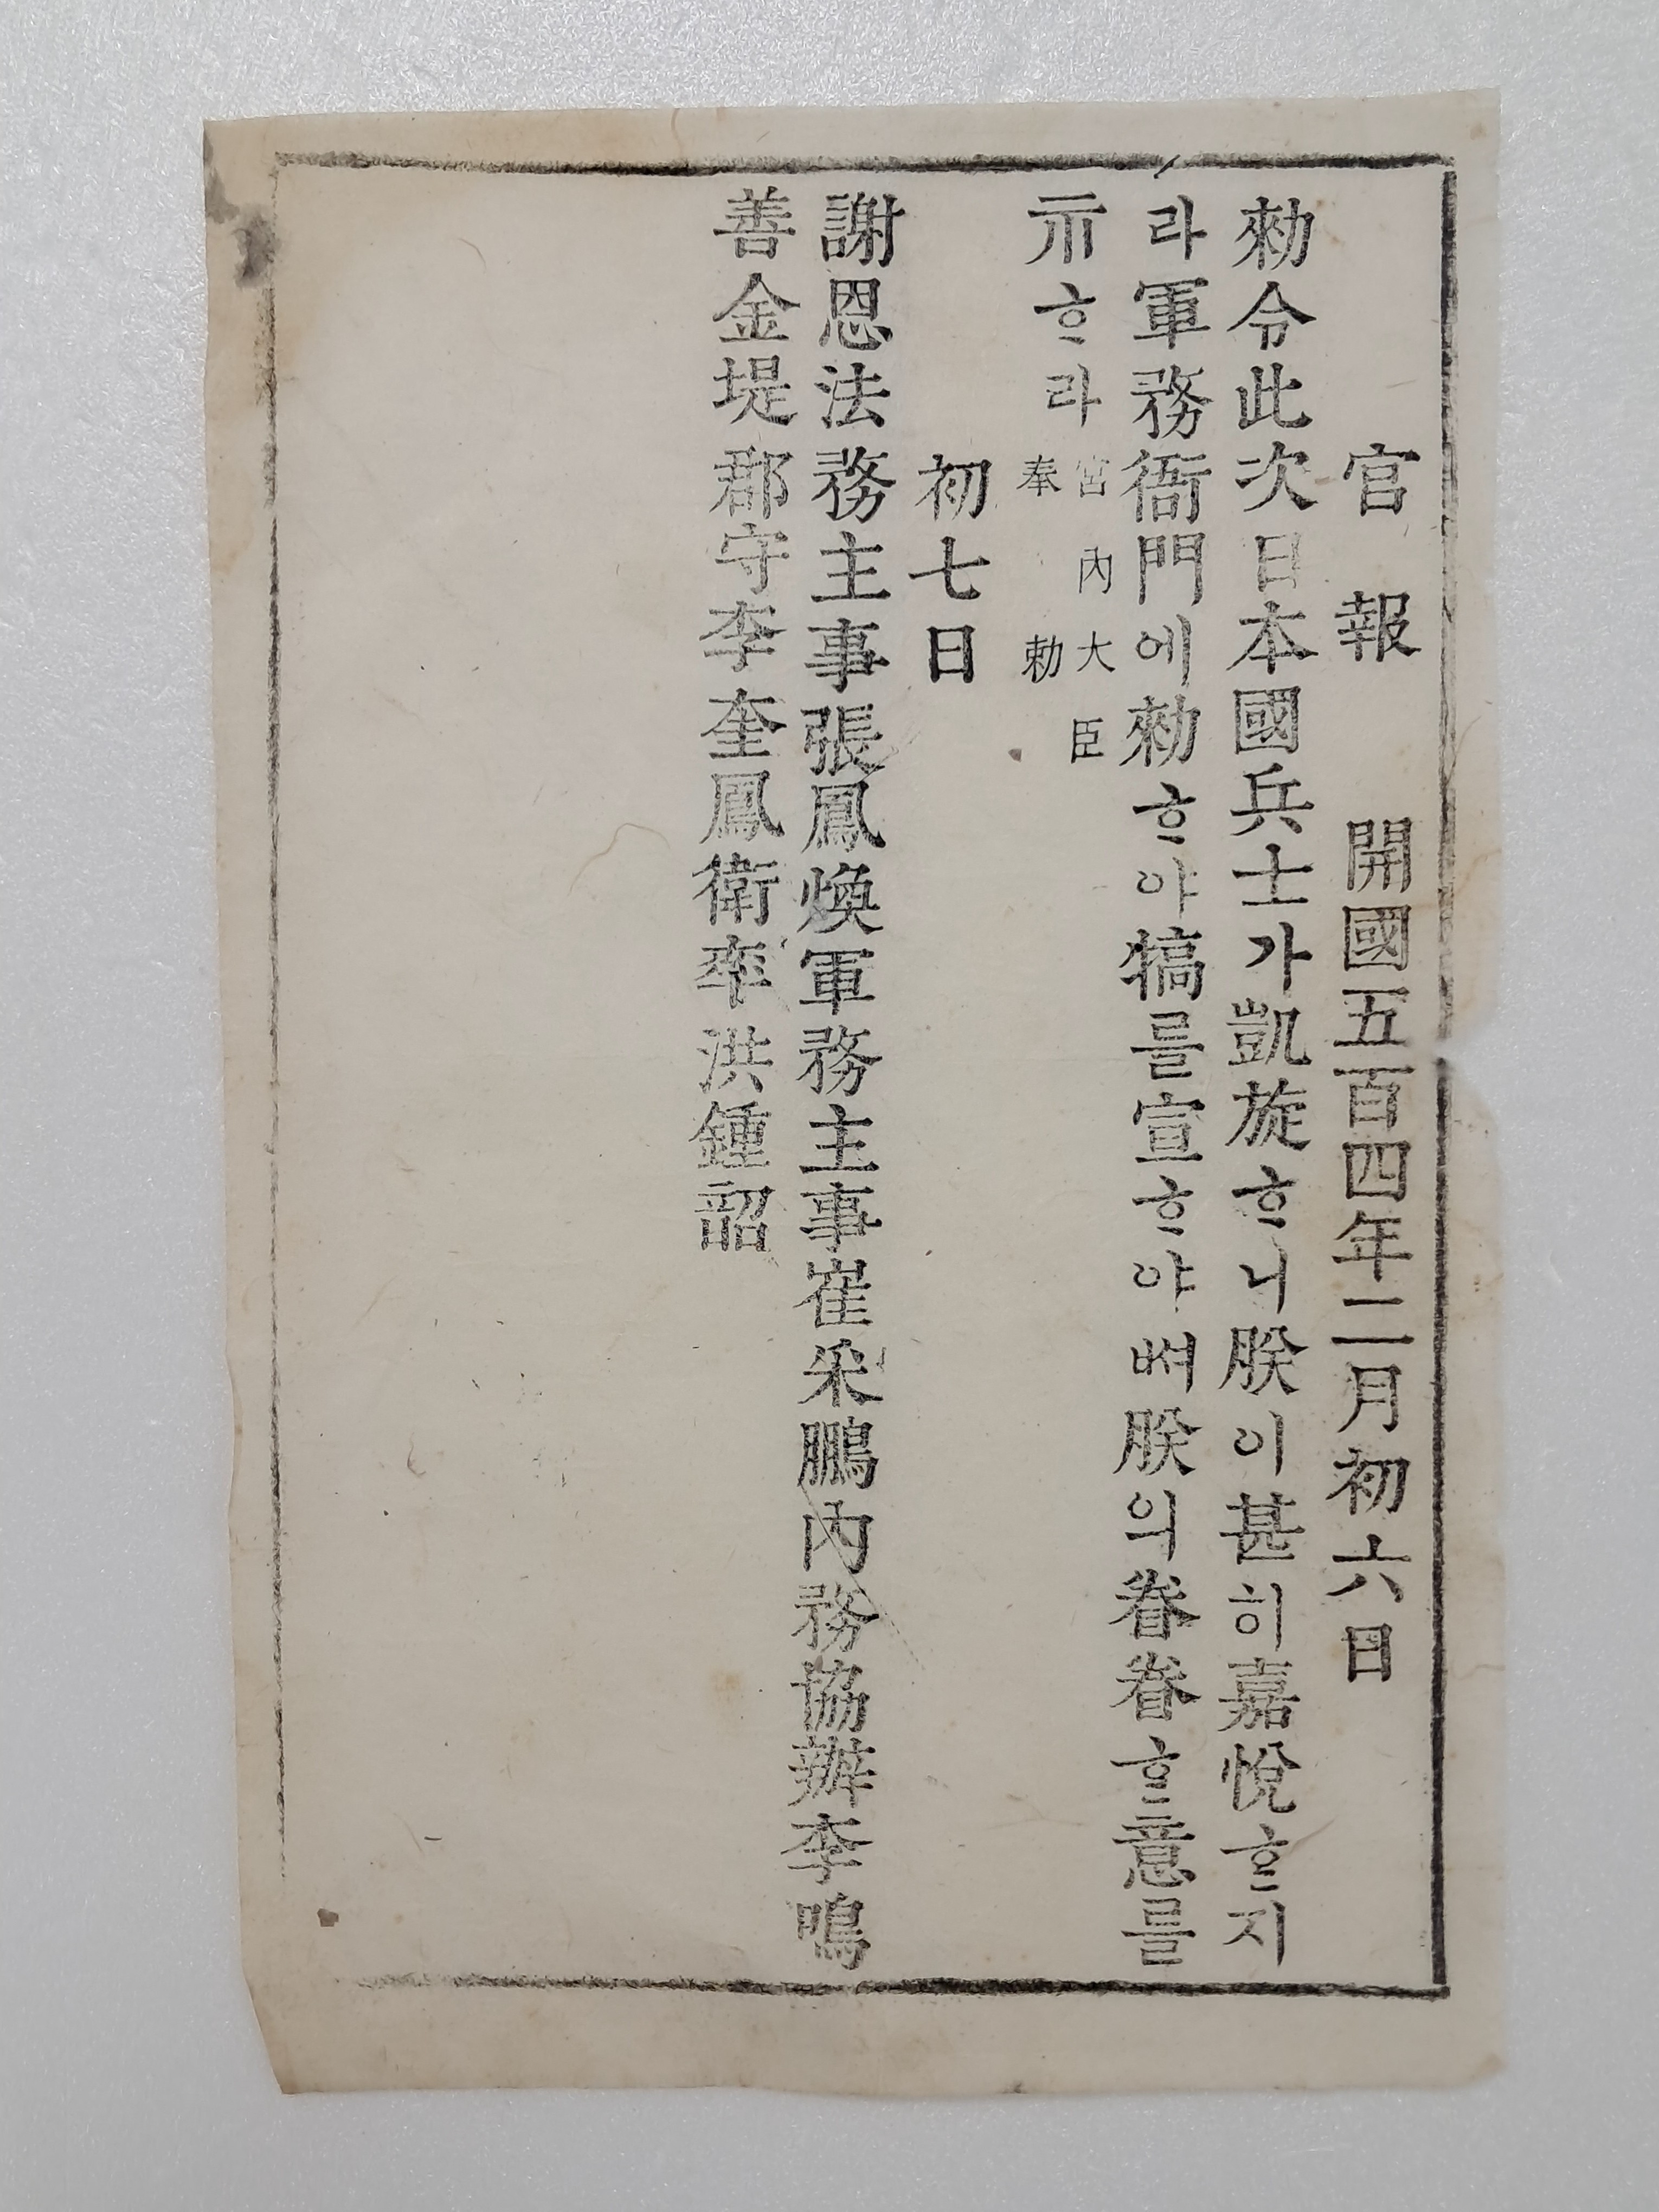 官報 開國五百四年二月初六日
勅令此次日本國兵士가凱旋ᄒᆞ니朕이甚히嘉悅ᄒᆞ지
라軍務衙門에勅ᄒᆞ야犒를宣ᄒᆞ야ᄡᅥ朕의眷眷ᄒᆞᆫ意를
示ᄒᆞ라 宮內大臣
奉勅
初七日
謝恩法務主事張鳳煥軍務主事崔釆鵬內務協辦李鳴
善金堤郡守李奎鳳衛率洪鍾韶